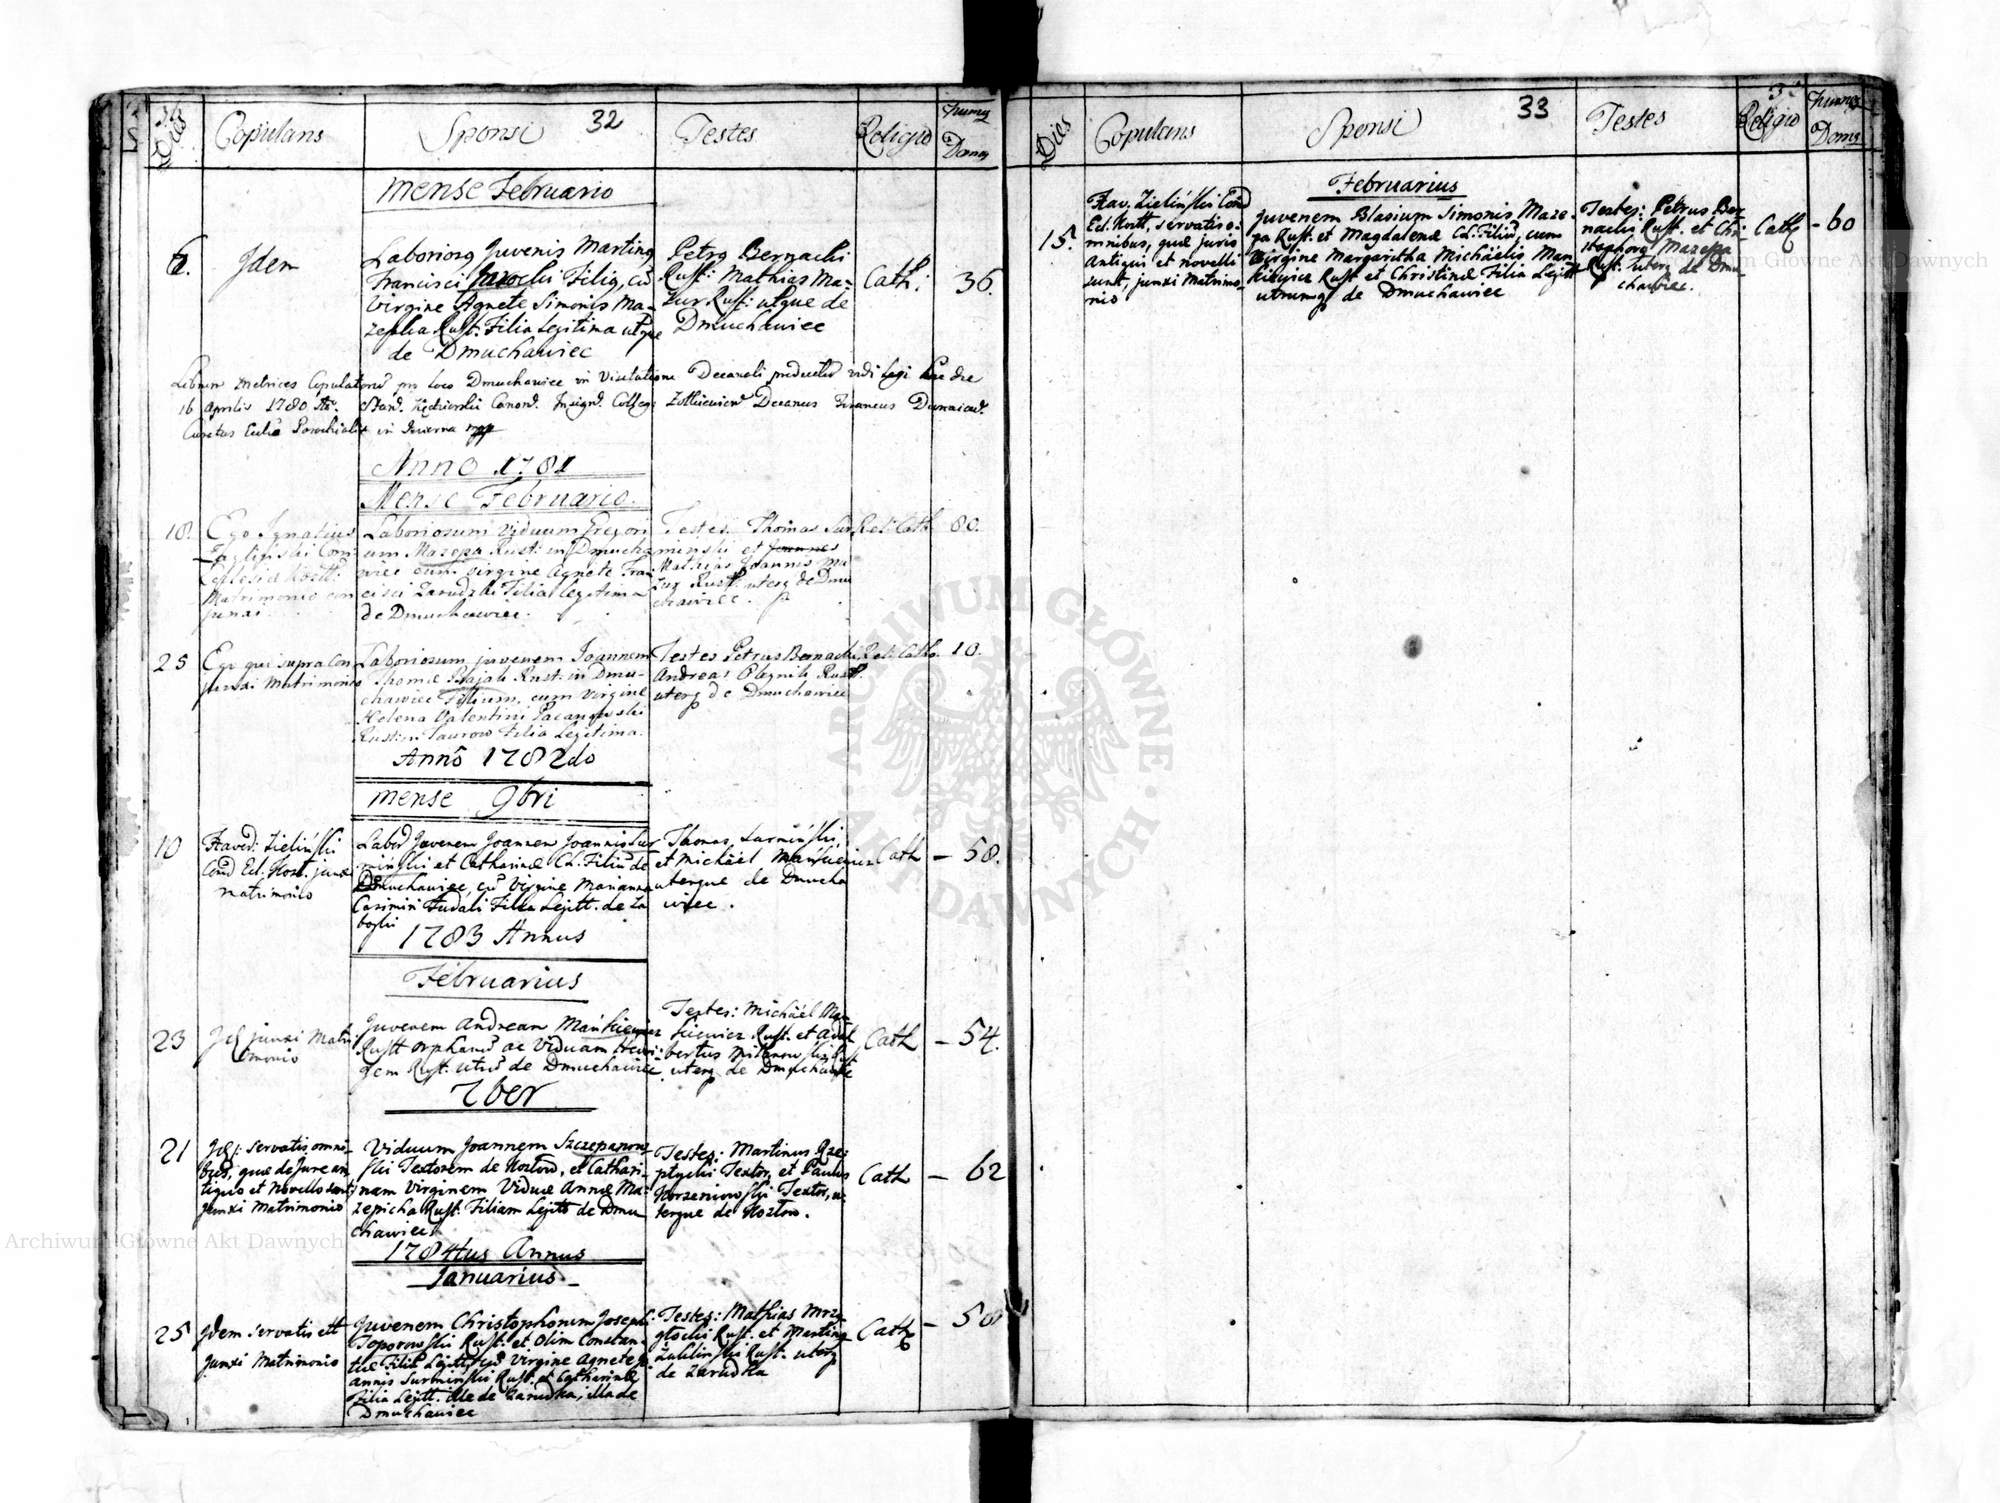 Dies Copulans Sponsi 32 Testes Religio Numq Domq
Mense Februario
6. Jdem
Laboriosq Juvenis Martinq
Francisci Jarochi Filiq, cū
Virgine Agnete Simonis Ma-
zepha Rust: Filia Legitima utqe
de Dmuchawiec
Petrq Bernacki
Rust: Mathias Ma-
zur Rust: utque de
Dmuchawiec
Cath: 36.
Librum Metrices Copulatorū pro Loco Dmuchawiec in Visitatione Decanali productū vidi legi hac die
16 Aprilis 1780
Curatus Eccl: Parochialis in
Anno 1781
Mense Februario.
18.
Ego Ignatius
Com
Ecclesia Kozlt:
Matrimonio con
junxi.
Laboriosum Viduum Gregori
um Mazepa Rust: in Dmucha
wiec cum virgine Agnete Fran
cisci Zarudzki Filia legitima
de Dmuchawiec.
Testes. Thomas Sur
minski et Joannes
Mathias Joannis Ma
zur Rust: uterq de Dmu
chawiec.
Rel: Cath. 80.
25
Ego qui supra Con
junxi Matrimonio
Laboriosum juvenem Joannem
Thomæ Rust: in Dmu-
chawiec Filium, cum Virgine
Helena Valentini Pacanowski
Rust: in Taurow Filia Legitima.
Testes Petrus Bernacki
Andreas Oleynik Rust.
uterq de Dmuchawiec
Rel: Cath. 10.
Anno 1782do
mense 9bri
10
Xaver: Zieliński
Cond Ecl. Kozt. junxi
Matrimonio
Labor Juvenem Joannem Joannis Sur
miński et Catharinæ C.L. Filiū de
Dmuchawiec, cū Virgine Marianna
Casimiri Fudali Filia Legitt. de Za
boyki
Thomas Surmiński,
et Michäel Mańkiewicz
uterque de Dmucha
wiec.
Cath – 58.
1783 Annus
Februarius
23
Jd junxi Matri
monio
Juvenem Andream Mańkiewicz
Rustt orphanū ac Viduam Hedvi
gem Rust: utrūq de Dmuchawiec
Testes: Michäel Man
kiewicz Rust. et Adal
bertus Milanowski Rust
uterq de Dmuchawiec
Cath – 54.
7ber
21
Jd: servatis omni
bus, quæ de Jure an
tiquo et Novello sunt
junxi Matrimonio
Viduum Joannem Szczepanow
ski Textorem de Kozłow, et Cathari-
nam Virginem Viduæ Annæ Ma
zepicha Rust. Filiam Legitt de Dmu
chawiec
Testes: Martinus Rze
ptycki Textor, et Paulus
Korzeniowski Textor, u-
terque de Kozłow.
Cath – 62
1784tus Annus
Januarius.
25
Jdem servatis ett
junxi Matrimonio
Juvenem Christophorum Josephi
Toporowski Rust. et Olim Constan-
tiæ Filiū Legitt, cū Virgine Agnete Jo
annis Surmiński Rust. et Catharinæ
Filia Legitt. ille de Zarudka, illa de
Dmuchawiec
Testes: Mathias Mrzy
głocki Rust. et Martinq
Żukliński Rust. uterq
de Zarudka
Cath – 58
Dies Copulans Sponsi 33 Testes Religio Numq Domq
Februarius
15.
Xav. Zieliński Cond
Ecl. Kozlt, servatis o-
mnibus, quæ juris
Antiqui et novelli
sunt, junxi Matrimo-
nio
Juvenem Blasium Simonis Maze-
pa Rust. et Magdalenæ C.L. Filiū, cum
Virgine Margaretha Michäelis Man
kiewicz Rust et Christinæ Filia Legitt
utrumq de Dmuchawiec
Testes: Petrus Ber
nacki Rust. et Chri-
stophorq Mazepa
Rust. uterq de Dmu-
chawiec.
Cath – 60
ARCHIWUM GŁÓWNE AKT DAWNYCH
Archiwum Główne Akt Dawnych
Archiwum Główne Akt Dawnych